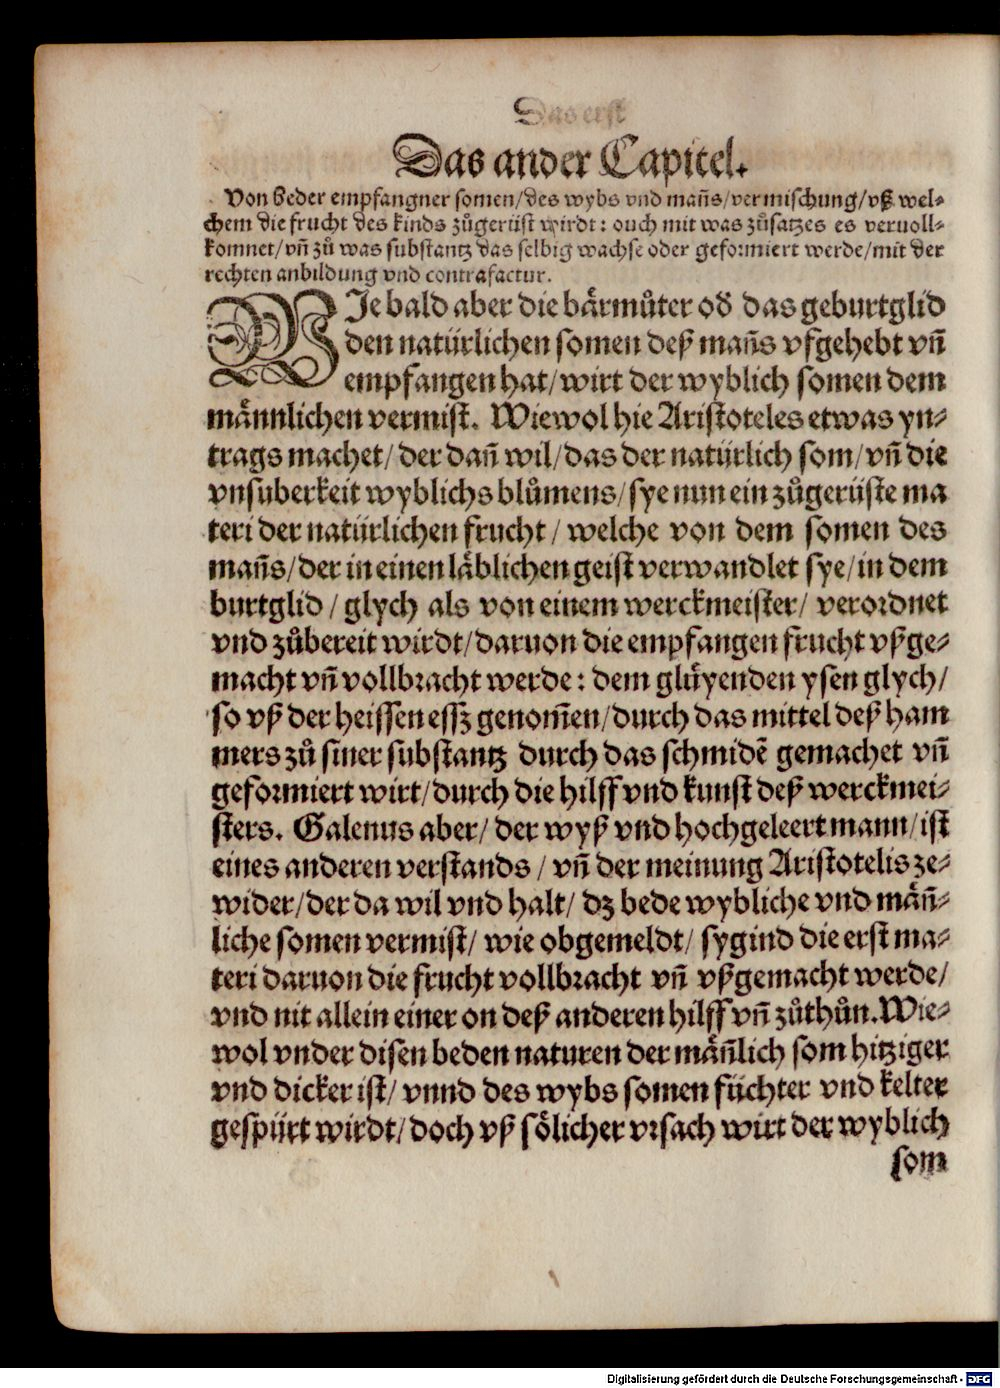 Das erst
Das ander Capitel.
Von beder empfangner somen/des wybs vnd mañs/vermischung/vß wel⸗
chem die frucht des kinds zůgerüst wirdt: ouch mit was zůsatzes es veruoll⸗
komnet/vñ zů was substantz das selbig wachse oder geformiert werde/mit der
rechten anbildung vnd contrafactur.
WIe bald aber die bärmůter oď das geburtglid
den natürlichen somen deß mañs vfgehebt vñ
empfangen hat/wirt der wyblich somen dem
männlichen vermist. Wiewol hie Aristoteles etwas yn⸗
trags machet/der dañ wil/das der natürlich som/vñ die
vnsuberkeit wyblichs blůmens/sye nun ein zůgerüste ma
teri der natürlichen frucht/welche von dem somen des
mañs/der in einen läblichen geist verwandlet sye/in dem
burtglid/glych als von einem werckmeister/verordnet
vnd zůbereit wirdt/daruon die empfangen frucht vßge⸗
macht vñ vollbracht werde: dem glüyenden ysen glych/
so vß der heissen essz genom̃en/durch das mittel deß ham
mers zů siner substantz durch das schmidẽ gemachet vñ
geformiert wirt/durch die hilff vnd kunst deß werckmei⸗
sters. Galenus aber/der wyß vnd hochgeleert mann/ist
eines anderen verstands/vñ der meinung Aristotelis ze⸗
wider/der da wil vnd halt/dz bede wybliche vnd mäñ⸗
liche somen vermist/wie obgemeldt/sygind die erst ma⸗
teri daruon die frucht vollbracht vñ vßgemacht werde/
vnd nit allein einer on deß anderen hilff vñ zůthůn. Wie⸗
wol vnder disen beden naturen der mäñlich som hitziger
vnd dicker ist/vnnd des wybs somen füchter vnd kelter
gespürt wirdt/doch vß sölicher vrsach wirt der wyblich
som
Digitalisierung gefördert durch die Deutsche Forschungsgemeinschaft - DFG